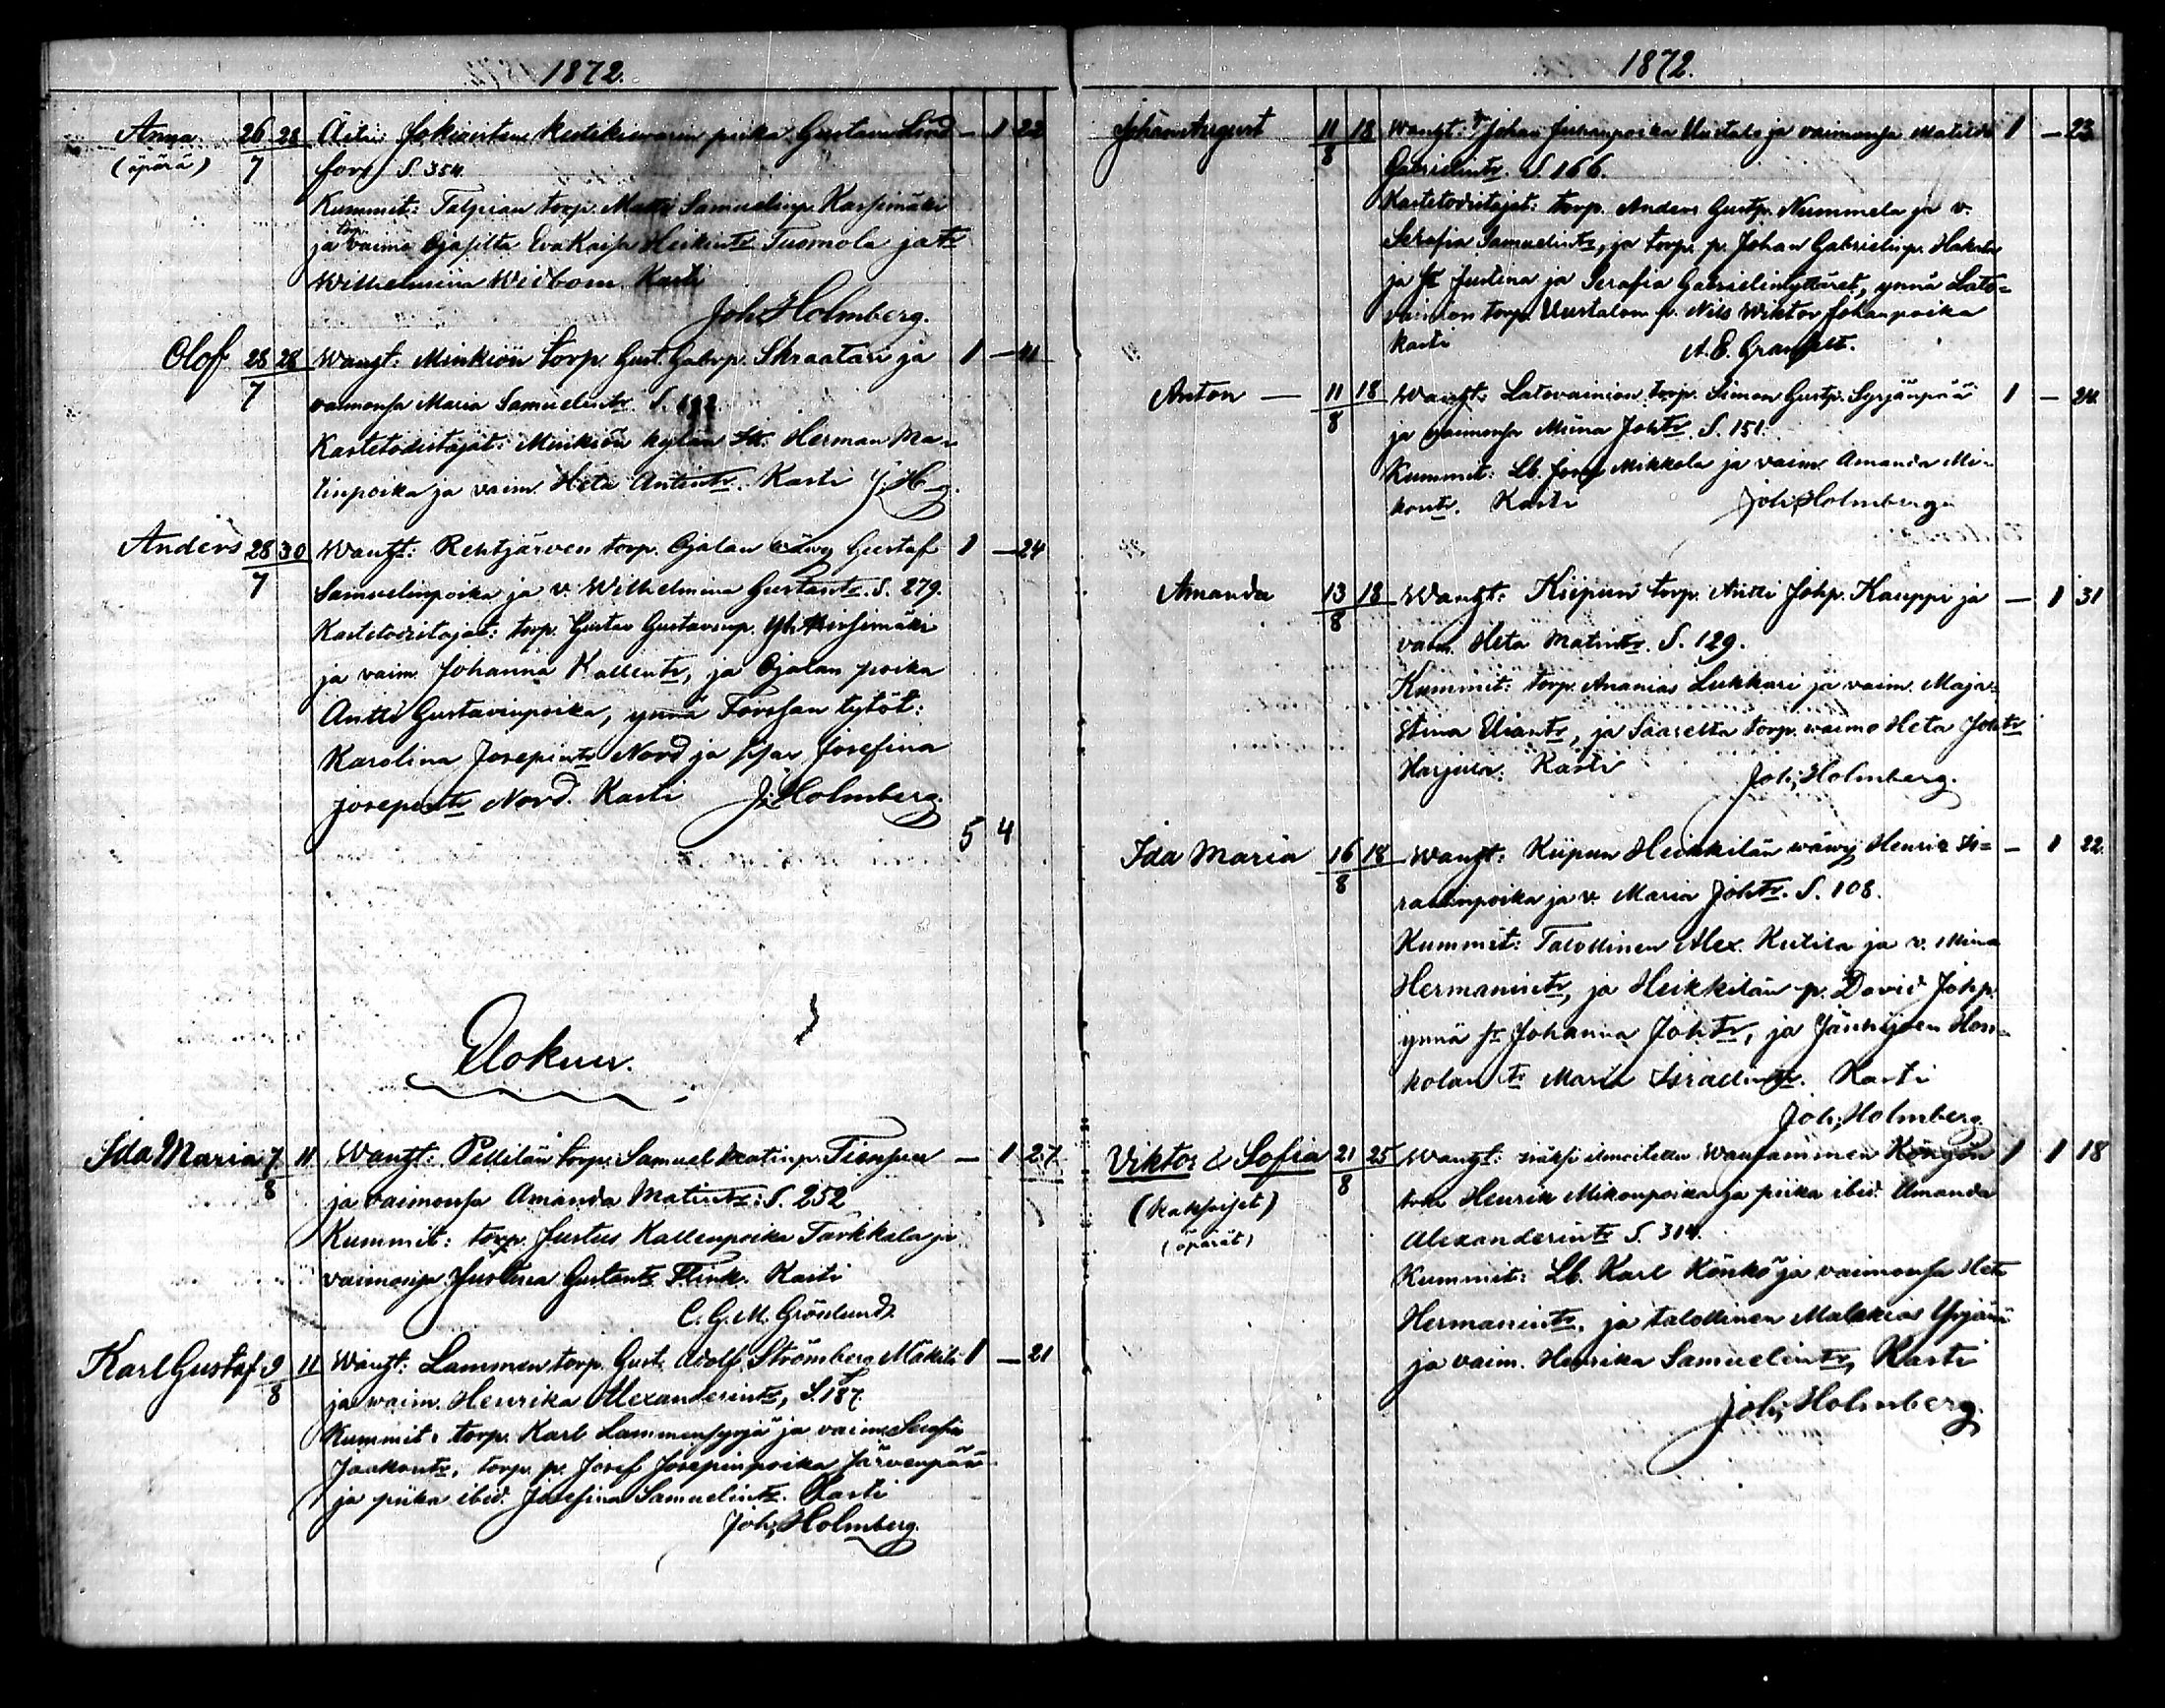 1872.
Anna 26 28 Äiti: Jokioisten kestikievarin piika Gustava Lind- — 1 22
(äpärä) 7 fors S. 354.
Kummit: Talpian torp. Matti Samuelinp. Kassimäki
ja torp. vaimo Ojasilta Eva Kaisa Heikintr Tuomola ja tr
Wilhelmiina Widbom. Kasti
Joh. Holmberg.
Olof 28 28 Wanht: Minkiön torp. Gust. Gabrp. Skraatari ja 1 — 41
7 vaimonsa Maria Samuelintr S.
Kastetodistajat: Minkiön kylän Herman Ma-
tinpoika ja vaim. Heta Antintr. Kasti J. H—g.
Anders 28 30 Wanht: Rehtjärven torp. Ojalan wäwy Gustaf 1 — 24
7 Samuelinpoika ja v. Wilhelmina Gustavtr. S. 279.
Kastetodistajat: torp. Gustav Gustavinp. Yli Hirsimäki
ja vaim. Johanna Kallentr, ja Ojalan poika
Antti Gustavinpoika, ynnä Forssan tytöt:
Karolina Josepintr Nord ja Josefina
Josepintr Nord. Kasti J. Holmberg.
5 4
Elokuu.
Ida Maria 7 11 Wanht: Pellilän torp. Samuel Matinp. Tienpää — 1 27
8 ja vaimonsa Amanda Matintr: S. 252
Kummit: torp. Justus Kallenpoika Tarkkala ja
vaimonsa Justina Gustavtr Flink. Kasti
C. G. M. Grönlund.
Karl Gustaf 9 11 Wanht: Lammen torp. Gust. Adolf Strömberg Mäkilä 1 — 21
8 ja vaim. Henrika Alexanderintr, S. 187.
Kummit: torp. Karl Lammensyrjä ja vaim. Serafia
Jaakontr, torp. p. Josef Josepinpoika Järvenpää
ja piika ibid. Josefina Samuelintr. Kasti
Joh. Holmberg.
1872.
Johan August 11 18 Wanht: Johan Juhanpoika Uustalo ja vaimonsa Matilda 1 — 23
8 Gabrielintr. S. 166.
Kastetodistajat: torp. Anders Gustp. Nummela ja v.
Serafia Samuelintr, ja torp. p. Johan Gabrielinp. Hakala
ja Justina ja Serafia Gabrielintyttäret, ynnä Lato-
vainion torp. Uustalon p. Nils Wiktor Johanpoika
Kasti A. E. Granfelt.
Anton — 11 18 Wanht: Latovainion torp. Simon Gustp. Syrjänpää 1 — 24
8 ja vaimonsa Miina Johtr. S. 151.
Kummit: Lb. Mikkola ja vaim. Amanda Mi-
kontr. Kasti Joh. Holmberg
Amanda 13 18 Wanht: Kiipun torp. Antti Johp. Kauppi ja — 1 31
8 vaim. Heta Matintr. S. 129.
Kummit: torp. Ananias Lukkari ja vaim. Maja-
Stina Eliantr, ja Saarelta torp. vaimo Heta Johtr
Harjula. Kasti Joh. Holmberg.
Ida Maria 16 18 Wanht: Kiipun Heikkilän wäwy Henrik Is- — 1 22
8 raelinpoika ja v. Maria Johtr. S. 108.
Kummit: Talollinen Alex. Kutila ja v. Miina
Hermanintr, ja Heikkilän p. David Johp.
ynnä Johanna Johtr, ja Jänhijoen Hon-
kolan tr Maria Israelintr. Kasti
Joh. Holmberg.
Viktor & Sofia 21 25 Wanht: wanhaminen 1 1 18
(kaksoiset) 8 Henrik Mikonpoika ja piika ibid. Amanda
(äpärät) Alexanderintr S. 314.
Kummit: Lb. Karl Könkö ja vaimonsa Heta
Hermanintr, ja talollinen Malakias Yrjänä
ja vaim. Henrika Samuelintr, Kasti
Joh. Holmberg.